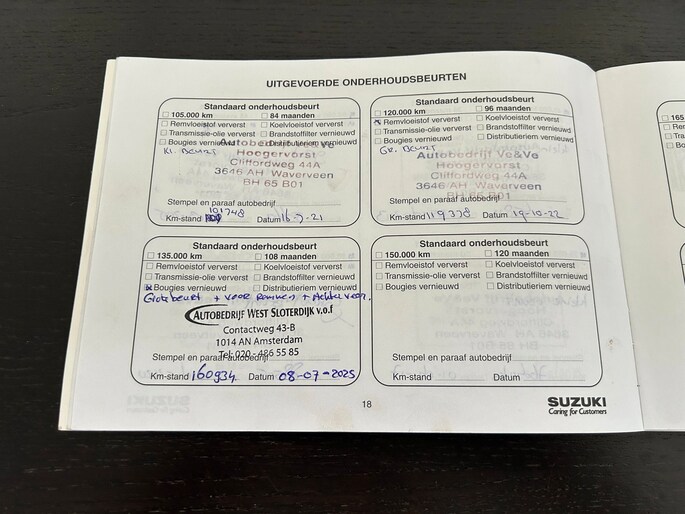 UITGEVOERDE ONDERHOUDSBEURTEN
Standaard onderhoudsbeurt
105.000 km 84 maanden
Remvloeistof ververst Koelvloeistof ververst
Transmissie-olie ververst Brandstoffilter vernieuwd
Bougies vernieuwd Distributieriem vernieuwd
Kl. Beurt
Autobedrijf Ve&Ve
Hoogervorst
Cliffordweg 44A
3646 AH Waverveen
BH 65 B01
Stempel en paraaf autobedrijf
101748
Km-stand Datum 16-7-21
Standaard onderhoudsbeurt
120.000 km 96 maanden
Remvloeistof ververst Koelvloeistof ververst
Transmissie-olie ververst Brandstoffilter vernieuwd
Bougies vernieuwd Distributieriem vernieuwd
Gr. Beurt
Autobedrijf Ve&Ve
Hoogervorst
Cliffordweg 44A
3646 AH Waverveen
BH 65 B01
Stempel en paraaf autobedrijf
Km-stand 119378 Datum 19-10-22
Standaard onderhoudsbeurt
135.000 km 108 maanden
Remvloeistof ververst Koelvloeistof ververst
Transmissie-olie ververst Brandstoffilter vernieuwd
Bougies vernieuwd Distributieriem vernieuwd
Grote beurt + voor remmen + Achter veer.
AUTOBEDRIJF WEST SLOTERDIJK v.o.f
Contactweg 43-B
1014 AN Amsterdam
Tel: 020 - 486 55 85
Stempel en paraaf autobedrijf
Km-stand 160934 Datum 08-07-2025
Standaard onderhoudsbeurt
150.000 km 120 maanden
Remvloeistof ververst Koelvloeistof ververst
Transmissie-olie ververst Brandstoffilter vernieuwd
Bougies vernieuwd Distributieriem vernieuwd
Stempel en paraaf autobedrijf
Km-stand Datum
18
SUZUKI
Caring for Customers
165